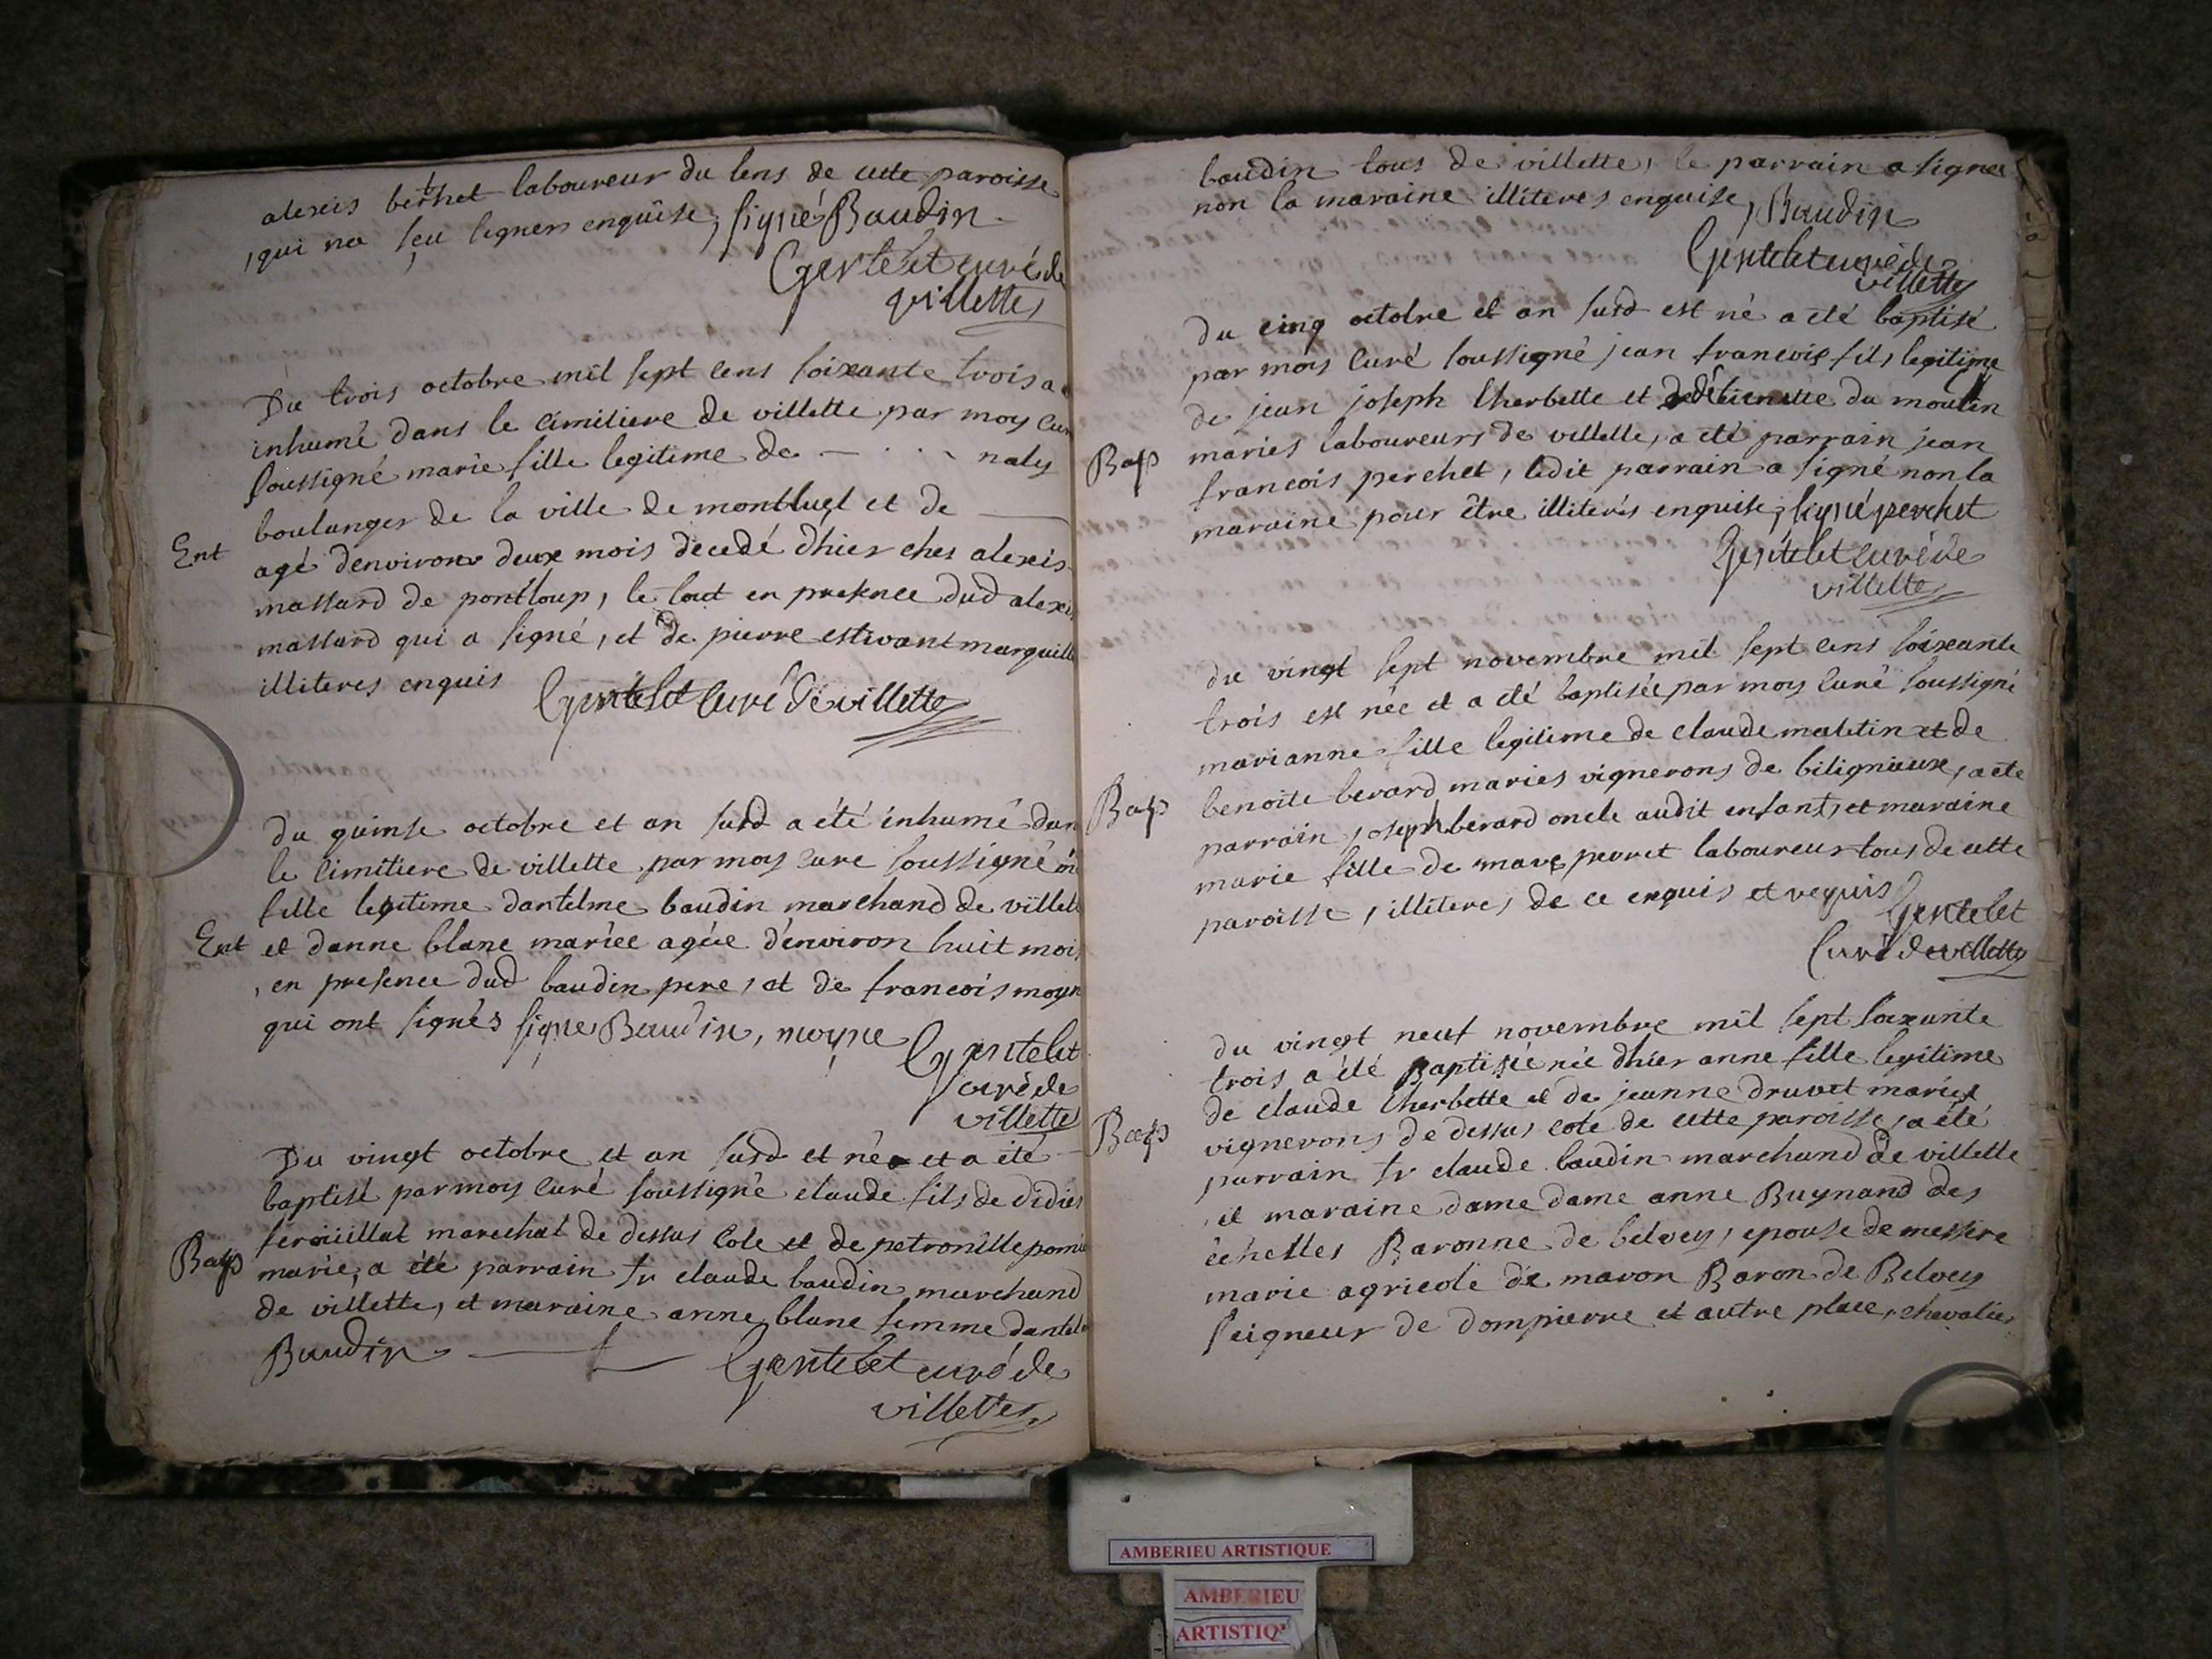 alexis berthet laboureur du lens de cette paroisse
, qui na seu signer enquise, signé Baudin
Gentelet curé de
villette
Du trois octobre mil sept cens soixante trois a
inhumé dans le cimitiere de villette par moy cur
soussigné marie fille legitime de — . . . naly
boulanger de la ville de montluel et de —
Ent
agé denviron deux mois decedé d'hier ches alexis
massard de pontloup, le tout en presence dud alexis
massard qui a signé, et de pierre estivant marguille
illiteres enquis Gentelet curé de villette
du quinse octobre et an susd a été inhumé dan
le cimitiere de villette par moy curé soussigné
fille legitime dantelme baudin marchand de villett
Ent
et danne blanc mariee agée d'environ huit mois
, en presence dud baudin pere, et de francois moyn
qui ont signés signe Baudin, moyne Gentelet
curé de
villette
Du vingt octobre et an susd et né et a été
baptisé par moy curé soussigné claude fils de didier
feroüillat marechal de dessus cote et de petronille
Bap
marié, a été parrain sr claude baudin marchand
de villette, et maraine anne blanc femme dantel
Baudin Gentelet curé de
villette
baudin tous de villette, le parrain a signer
non la maraine illiteres enquise, Baudin
Gentelet curé de
villette
Du cinq octobre et an susd est né a été baptisé
par moy curé soussigné jean francois fils legitime
de jean joseph Cherbette et d'étiennette du moulin
Bap
mariés laboureurs de villette, a été parrain jean
francois perchet, ledit parrain a signé non la
maraine pour être illiterés enquise, signé perchet
Gentelet curé de
villette
du vingt sept novembre mil sept cens soixante
trois est née et a été baptisée par moy curé soussigné
marianne fille legitime de claude maletin et de
Bap
benoite berard mariés vignerons de bilignieux, a été
parrain joseph berard oncle audit enfant, et maraine
marie fille de marc perret laboureur tous de cette
paroisse, illiteres de ce enquis et requis Gentelet
Curé de villette
du vingt neuf novembre mil sept soixante
trois a été Baptisée née d'hier anne fille legitime
de claude Cherbette et de jeanne druvet mariés
Bap
vignerons de dessus cote de cette paroisse, a été
parrain sr claude baudin marchand de villette
, et maraine dame dame anne Buynand des
échelles Baronne de belvey, epouse de messire
marie agricole de maron Baron de Belvey
seigneur de dompierre et autre place, chevalier
AMBERIEU ARTISTIQUE
AMBERIEU
ARTISTIQ